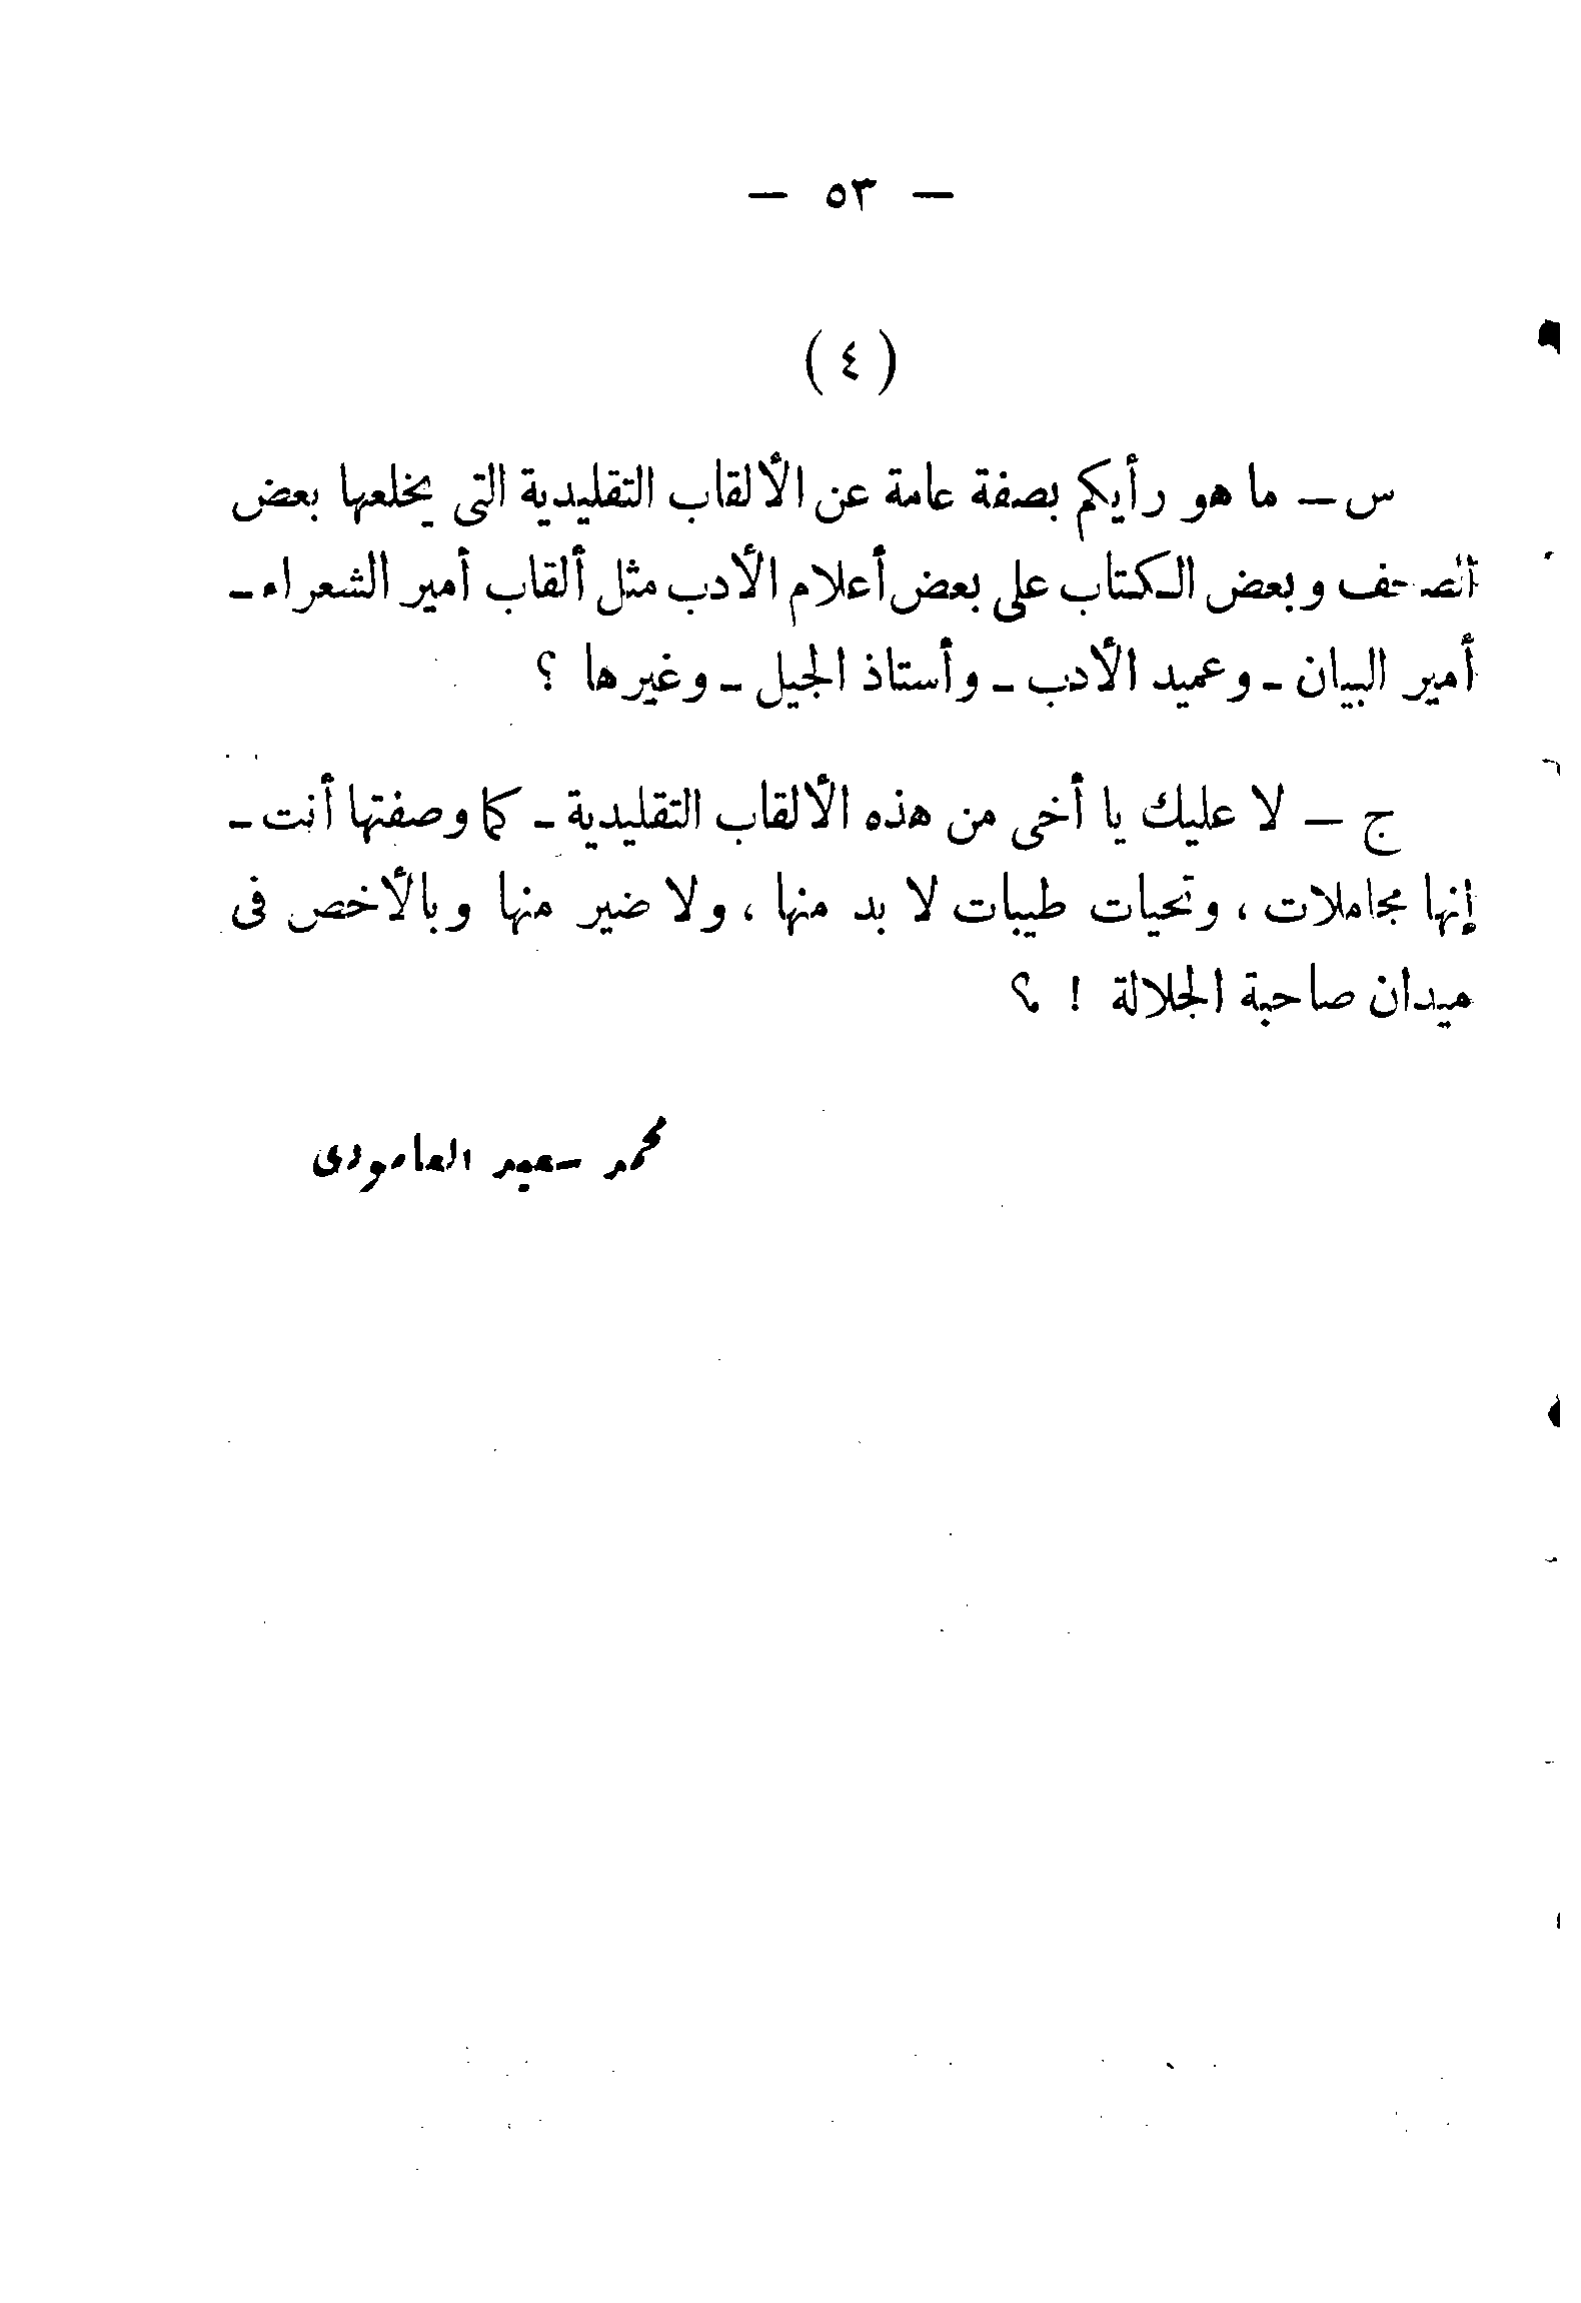 — ٥٣ —
( ٤ )
س — ما هو رأيكم بصفة عامة عن الألقاب التقليدية التى يخلعها بعض
الصحف وبعض الكتاب على بعض أعلام الأدب مثل ألقاب أمير الشعراء -
أمير البيان - وعميد الأدب - وأستاذ الجيل - وغيرها ؟
ج — لا عليك يا أخى من هذه الألقاب التقليدية - كما وصفتها أنت -
إنها مجاملات ، وتحيات طيبات لا بد منها ، ولا ضير منها وبالأخص فى
ميدان صاحبة الجلالة ! ؟
محمد سعيد العامودى